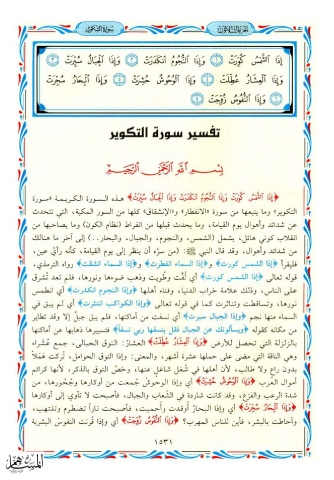 سورة التكوير
إِذَا الشَّمْسُ كُوِّرَتْ ۝ وَإِذَا النُّجُومُ انْكَدَرَتْ ۝ وَإِذَا الْجِبَالُ سُيِّرَتْ ۝
وَإِذَا الْعِشَارُ عُطِّلَتْ ۝ وَإِذَا الْوُحُوشُ حُشِرَتْ ۝ وَإِذَا الْبِحَارُ سُجِّرَتْ ۝
وَإِذَا النُّفُوسُ زُوِّجَتْ ۝
تفسير سورة التكوير
بسم الله الرحمن الرحيم
﴿إِذَا الشَّمْسُ كُوِّرَتْ وَإِذَا النُّجُومُ انْكَدَرَتْ وَإِذَا الْجِبَالُ سُيِّرَتْ﴾ هذه السورة الكريمة «سورة
التكوير» وما يتبعها من سورة «الانفطار» و«الإنشقاق» كلها من السور المكية، التي تتحدث
عن شدائد وأهوال يوم القيامة، وما يحدث قبلها من انفراط (نظام الكون) وما يصاحبها من
انقلاب كوني هائل، يشمل (الشمس، والنجوم، والجبال، والبحار..) إلى آخر ما هنالك
من شدائد وأهوال، وقد قال النبي ﷺ: (من سرَّه أن ينظر إلى يوم القيامة، كأنه رأي عين،
فليقرأ ﴿إذا الشمس كورت﴾ و﴿إذا السماء انفطرت﴾ و﴿إذا السماء انشقت﴾ رواه الترمذي،
قوله تعالى ﴿إذا الشمس كورت﴾ أي لُفَّت وطُويت وذهب ضوءها ونورها، فلم تعد تُشرق
على الناس، وذلك علامة خراب الدنيا، وفناء أهلها ﴿وإذا النجوم انكدرت﴾ أي انطمس
نورها، وتساقطت وتناثرت كما في قوله تعالى ﴿وإذا الكواكب انتثرت﴾ أي لم يبق في
السماء منها نجم ﴿وإذا الجبال سيرت﴾ أي نسفت من أماكنها، فلم يبق جبلٌ إلا وقد تطاير
من مكانه كقوله ﴿ويسألونك عن الجبال فقل ينسفها ربي نسفاً﴾ فتسييرها ذهابها عن أماكنها
بالزلزلة التي تحصل للأرض ﴿وإذا العشار عطلت﴾ العشارُ: النوق الحبالى، جمع عُشَراء
وهي الناقة التي مضى على حملها عشرة أشهر، والمعنى: وإذا النوق الحوامل، تُركت هَمَلاً
بدون راعٍ ولا طالب، لأن أهلها في شغل شاغلٍ عنها، وخصَّ النوق بالذكر، لأنها كرائم
أموال العرب ﴿وإذا الوحوش حشرت﴾ أي وإذا الوحوش جُمعت من أوكارها وجُحورها، من
شدة الرعب والفزع، وقد كانت شاردة في الشعاب والجبال، فأصبحت لا تأوي إلى أوكارها
﴿وإذا البحار سجرت﴾ أي وإذا البحارُ أُوقدت وأُحميت، فأصبحت ناراً تضطرم وتلتهب،
وأحاطت بالبشر، فأين للناس المهرب؟ ﴿وإذا النفوس زوجت﴾ أي وإذا قُرنت النفوسُ البشرية
١٥٣١